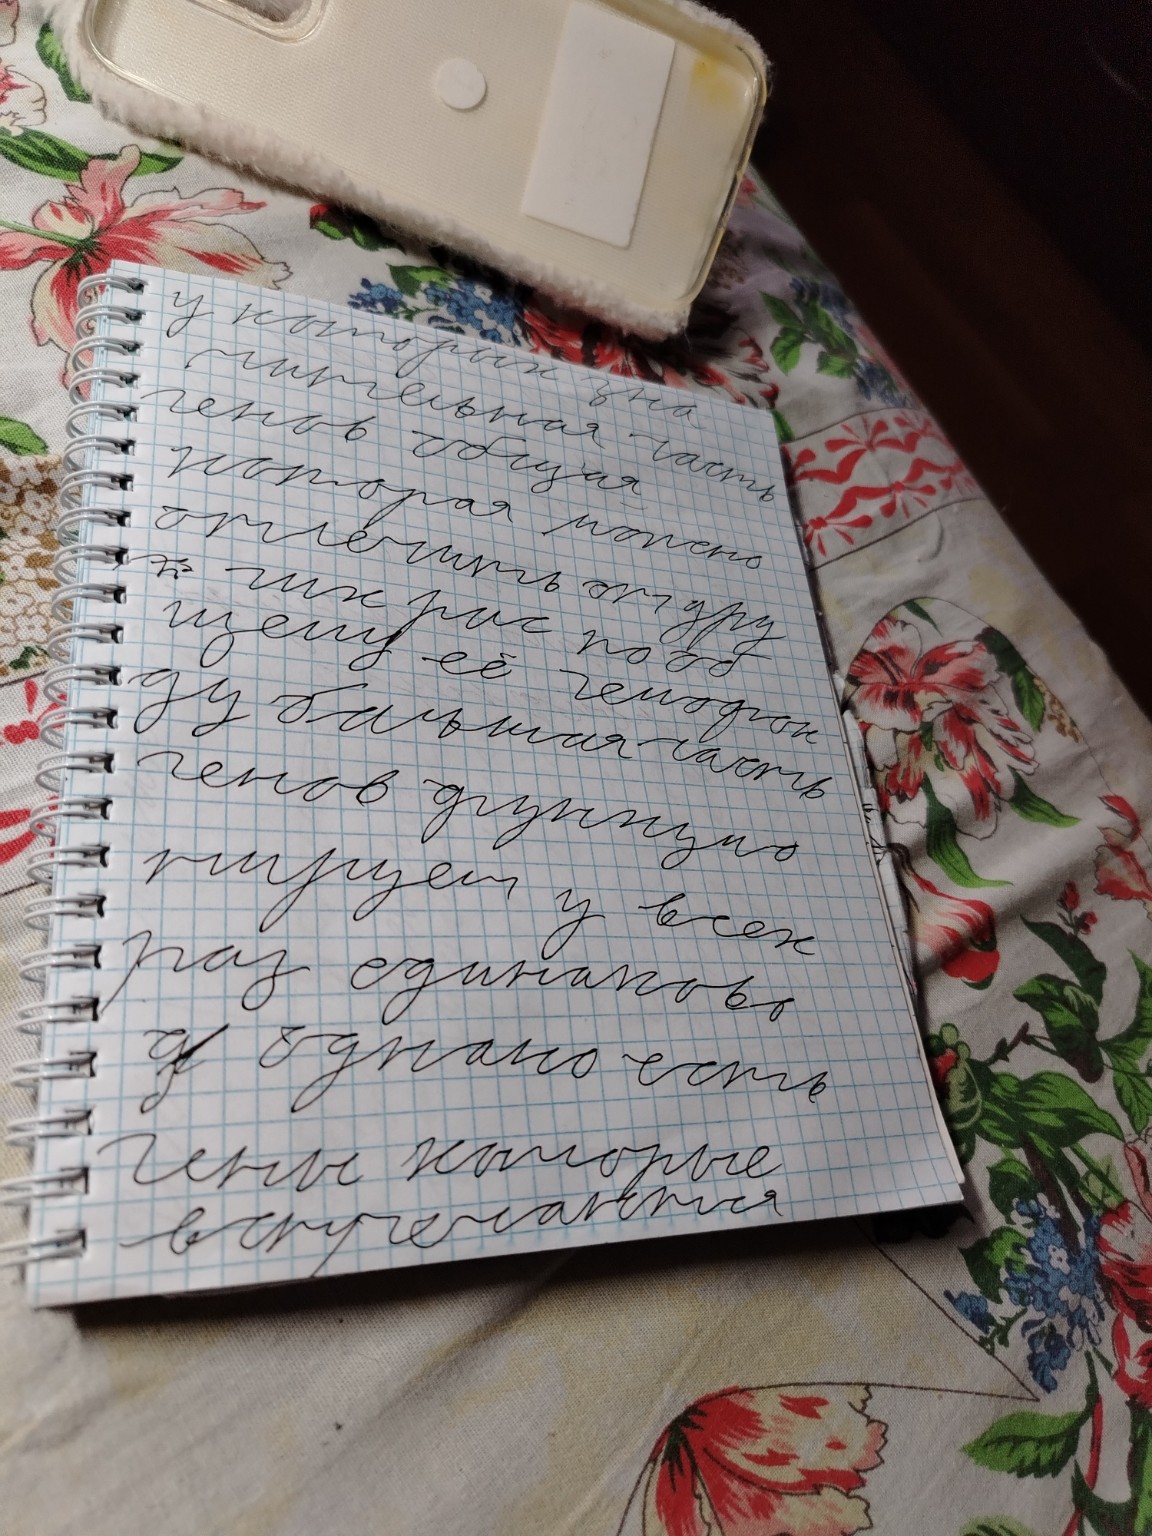 у которых зна
чительная часть
генов общая
которая можно
отлечить от дру
гих рас пооб
щему её генофон
ду большая часть
генов функцио
нирует у всех
раз одинаково
однако есть
гены которые
встречаются